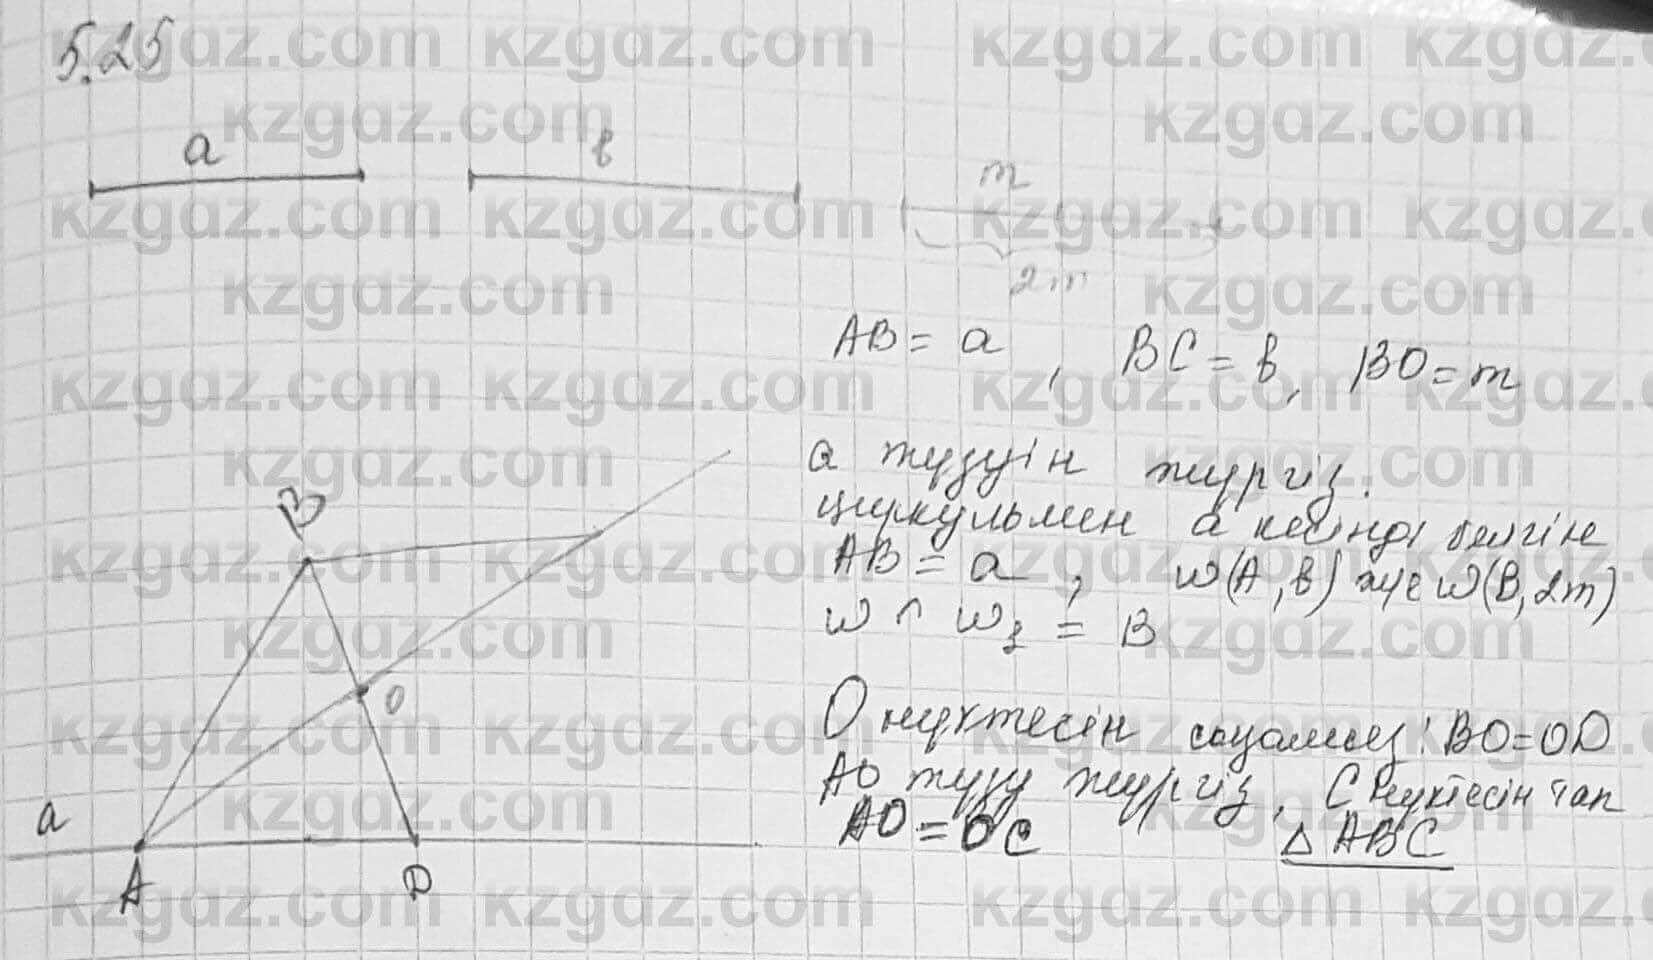 5.25
a
в
m
2m
AB = a , BC = в, BO = m
a түзуін жүргіз.
циркульмен a кесінді белгіле
AB = a , w(A, в) және w(B, 2m)
w ∩ w₁ = B
O нүктесін саламыз: BO = OD
AO түзу жүргіз, C нүктесін тап
AO = OC △ ABC
B
O
a
A
D
kzgdz.com